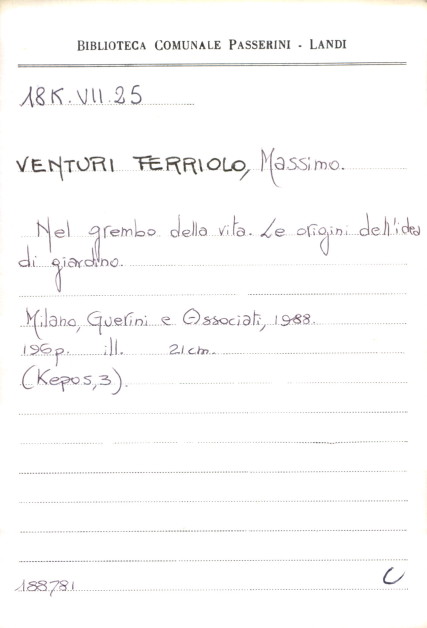 BIBLIOTECA COMUNALE PASSERINI - LANDI
18K.VII.25
VENTURI FERRIOLO, Massimo.
Nel grembo della vita. Le origini dell'idea
di giardino.
Milano, Guerini e Associati, 1988.
196p. ill. 21cm.
(Kepos, 3).
188781
C